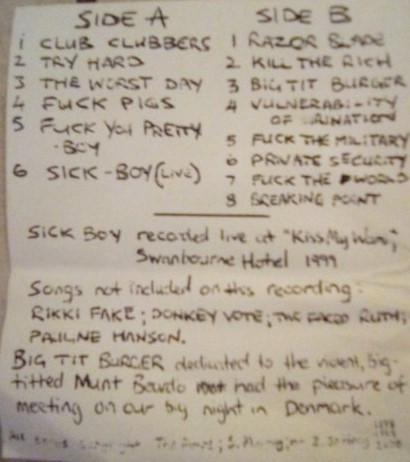 SIDE A
1 CLUB CLUBBERS
2 TRY HARD
3 THE WORST DAY
4 FUCK PIGS
5 FUCK YOU PRETTY
-BOY
6 SICK-BOY (LIVE)
SIDE B
1 RAZOR BLADE
2 KILL THE RICH
3 BIG TIT BURGER
4 VULNERABILITY
OF URINATION
5 FUCK THE MILITARY
6 PRIVATE SECURITY
7 FUCK THE WORLD
8 BREAKING POINT
SICK BOY recorded live at "Kiss My
Swanbourne Hotel 1999
Songs not included on this recording:
RIKKI FAKE; DONKEY VOTE; THE RUTH;
PAULINE HANSON.
BIG TIT BURGER dedicated to the big-
titted Munt had the pleasure of
meeting on our big night in Denmark.